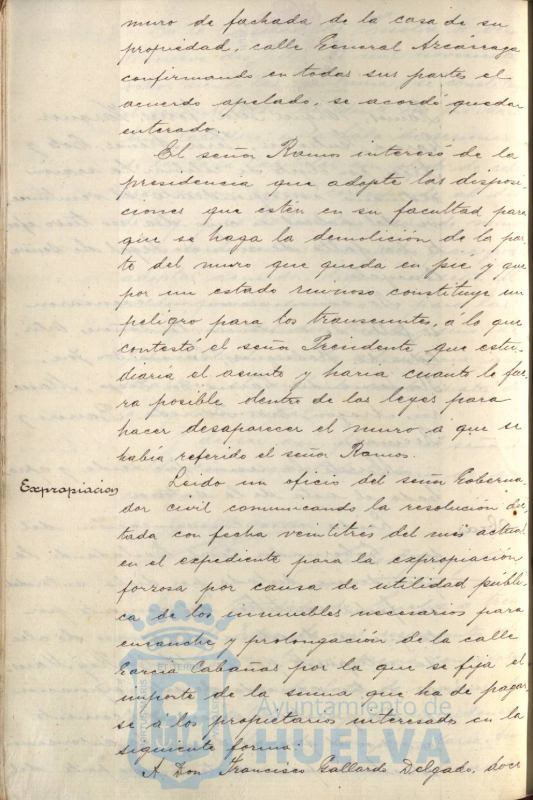 muro de fachada de la casa de su
propiedad, calle General Azcárraga
confirmando en todas sus partes el
acuerdo apelado, se acordó quedar
enterado.
El señor Ramos interesó de la
presidencia que adopte las disposi
ciones que estén en su facultad para
que se haga la demolición de la par
te del muro que queda en pié y que
por su estado ruinoso constituye un
peligro para los transeuntes, á lo que
contestó el señor Presidente que estu-
diaría el asunto y haría cuanto le fue
ra posible dentro de las leyes para
hacer desaparecer el muro á que se
había referido el señor Ramos.
Expropiacion
Leido un oficio del señor Goberna
dor civil comunicando la resolución dic
tada con fecha veintitrés del mes actual
en el expediente para la expropiación
forzosa por causa de utilidad públi-
ca de los inmuebles necesarios para
ensanche y prolongación de la calle
García Cabañas por la que se fija el
importe de la suma que ha de pagar
se á los propietarios interesados en la
siguiente forma:
A Don Francisco Gallardo Delgado, doce
Ayuntamiento de
HUELVA